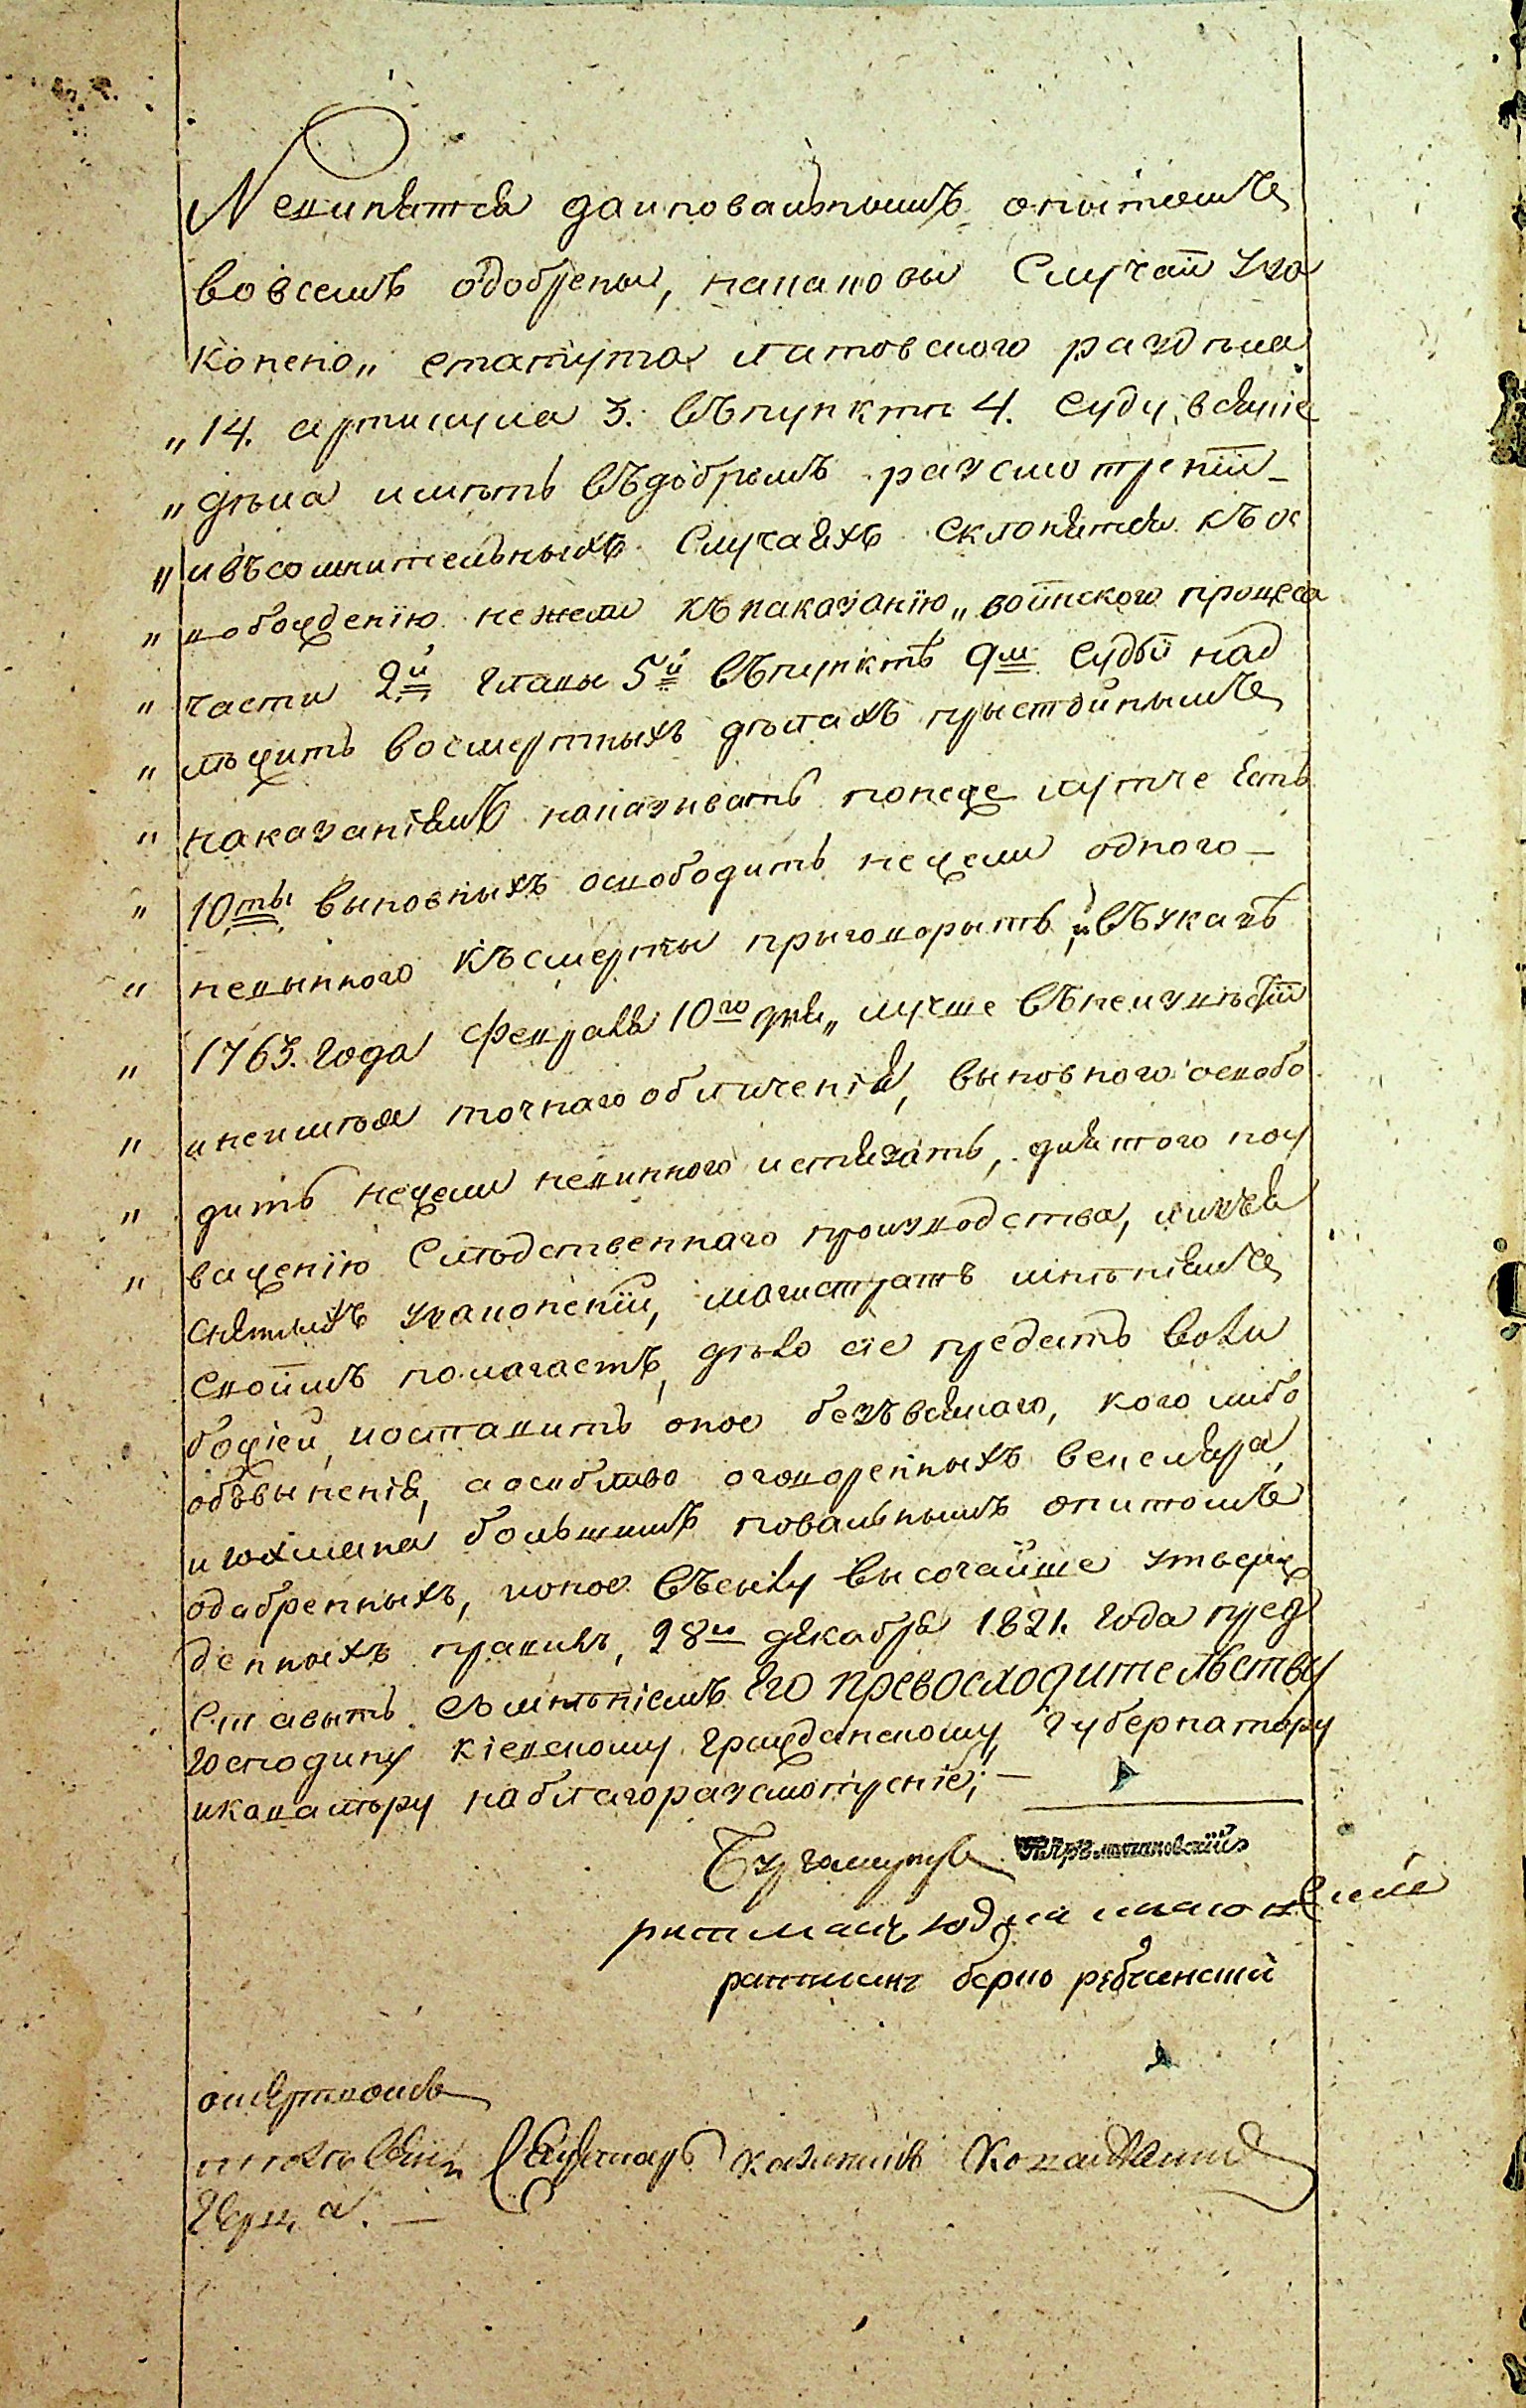 Невинятся даиповальнымъ опытомъ
вовсемъ одобрены, накаковы Случай уза
конено„ статута литовского раздѣла
„ 14. артикула 3. въпунктѣ 4. Суду всякие
„ дѣла имѣть въдобромъ разсмотрении
„ ивъсомнительныхъ Случаяхъ Склонятся къос
„ вобождению нежели къ наказанїю „ воинского процеса
„ части 2й главы 5й въпунктѣ 9м Судьи над
„ лѣжить восмертныхъ дѣлахъ прыстойнымъ
„ наказаніямъ наказивать понеже лутче есть
„ 10ть выновныхъ освободить нежели одного
„ невынного къ смерты прыговорыть, и въуказѣ
„ 1763. года Февраля 10го дня „ лучше въ неизвѣстїи
„ инеимѣя точнаго обличенія, выновного освобо
„ дить нежели невинного истязать, для того поу
„ важенїю Слѣдственнаго произвоdства, ижъ
снятыхъ узаконенїи, магистратъ мнѣніямъ
Своимъ полагаетъ, дѣло сїе предать воли
божїей, иоставить оное безъ всякаго, кого либо
объвыненія, аособливо оговоренныхъ векслера,
и гохмана большимъ повальнымъ опитомъ
одабренныхъ, ионое въсилу высочайше утверж
денныхъ правилъ, 28го декабря 1821. года пред
ставыть съ мнѣніемъ Его превосходительству
господину кіевскому гражданскому губернатору
икавалѣру наблагоразсмотреніе; —
Бургомистръ
ратманъ
ратманъ берко рибчинский